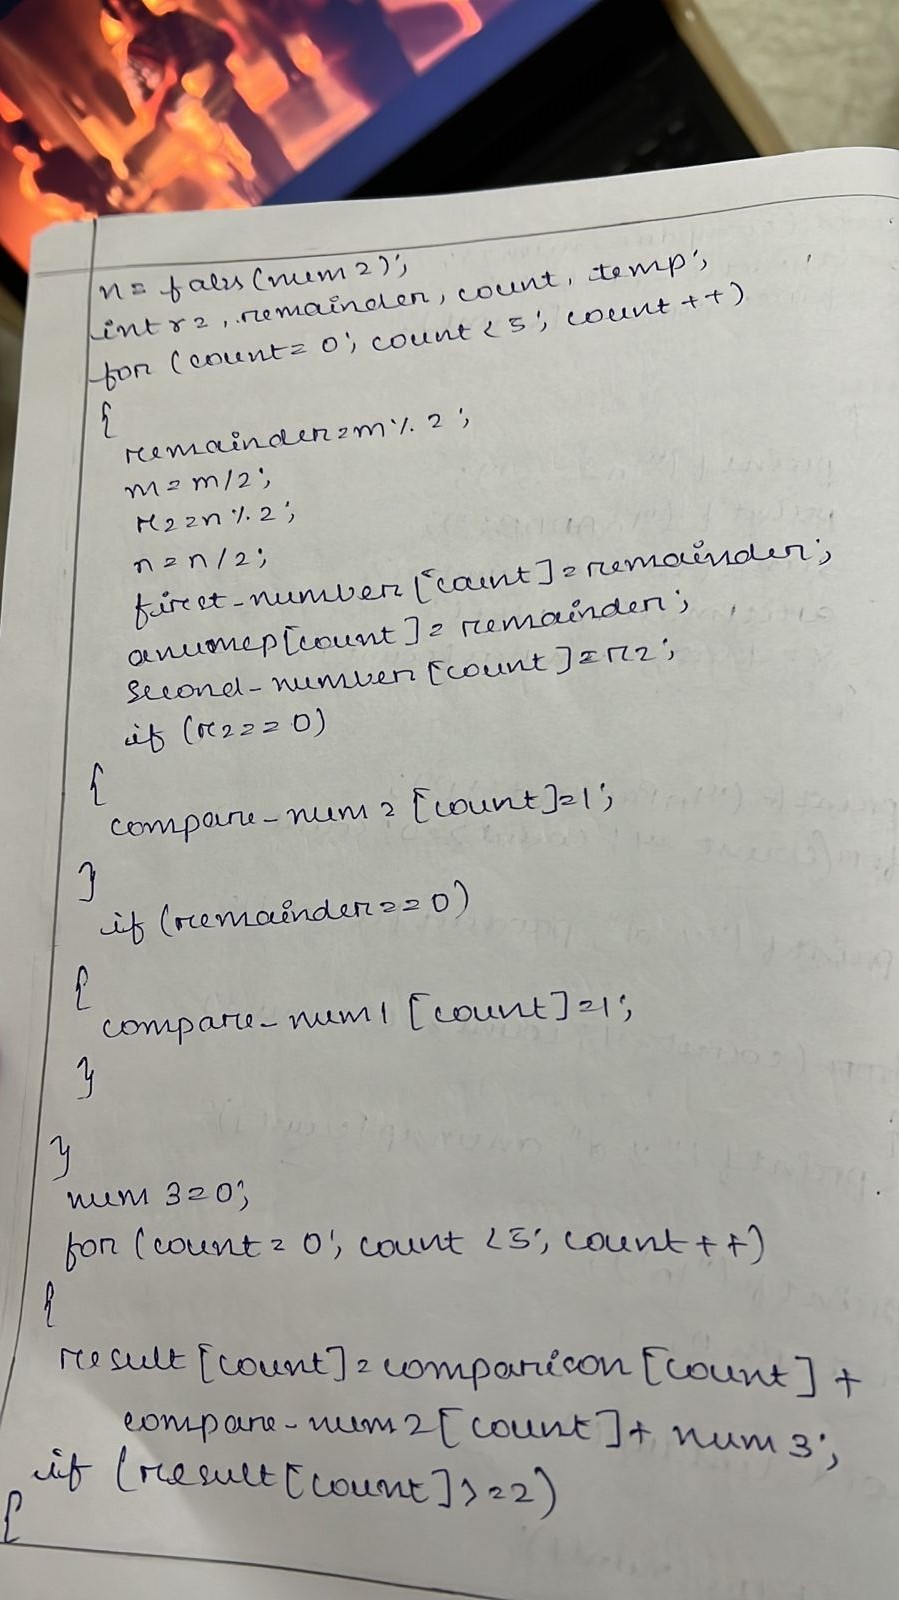 n= fabs(num2);
int r2, remainder, count, temp;
for (count=0; count<5; count++)
{
remainder=m%2;
m=m/2;
r2=n%2;
n=n/2;
first_number[count]=remainder;
anumcp[count]=remainder;
second_number[count]=r2;
if (r2==0)
{
compare_num2[count]=1;
}
if (remainder==0)
{
compare_num1[count]=1;
}
}
num3=0;
for (count=0; count<5; count++)
{
result[count]=comparison[count]+
compare_num2[count]+num3;
if (result[count]>=2)
{